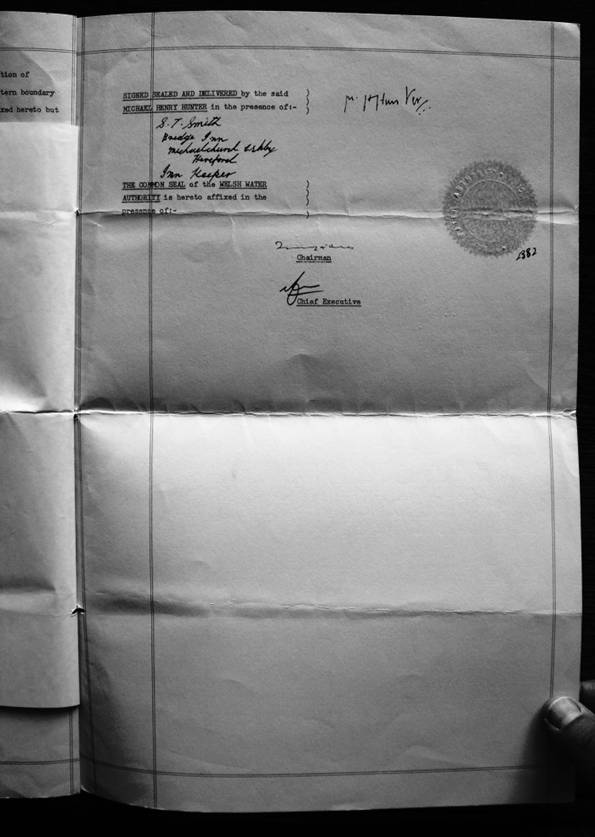 tion of
tern boundary
xed hereto but
SIGNED SEALED AND DELIVERED by the said
MICHAEL HENRY HUNTER in the presence of:-
S. T. Smith
Bridge Inn
Michaelchurch Eskley
Hereford
Inn Keeper
THE COMMON SEAL of the WELSH WATER
AUTHORITY is hereto affixed in the
presence of:-
Chairman
Chief Executive